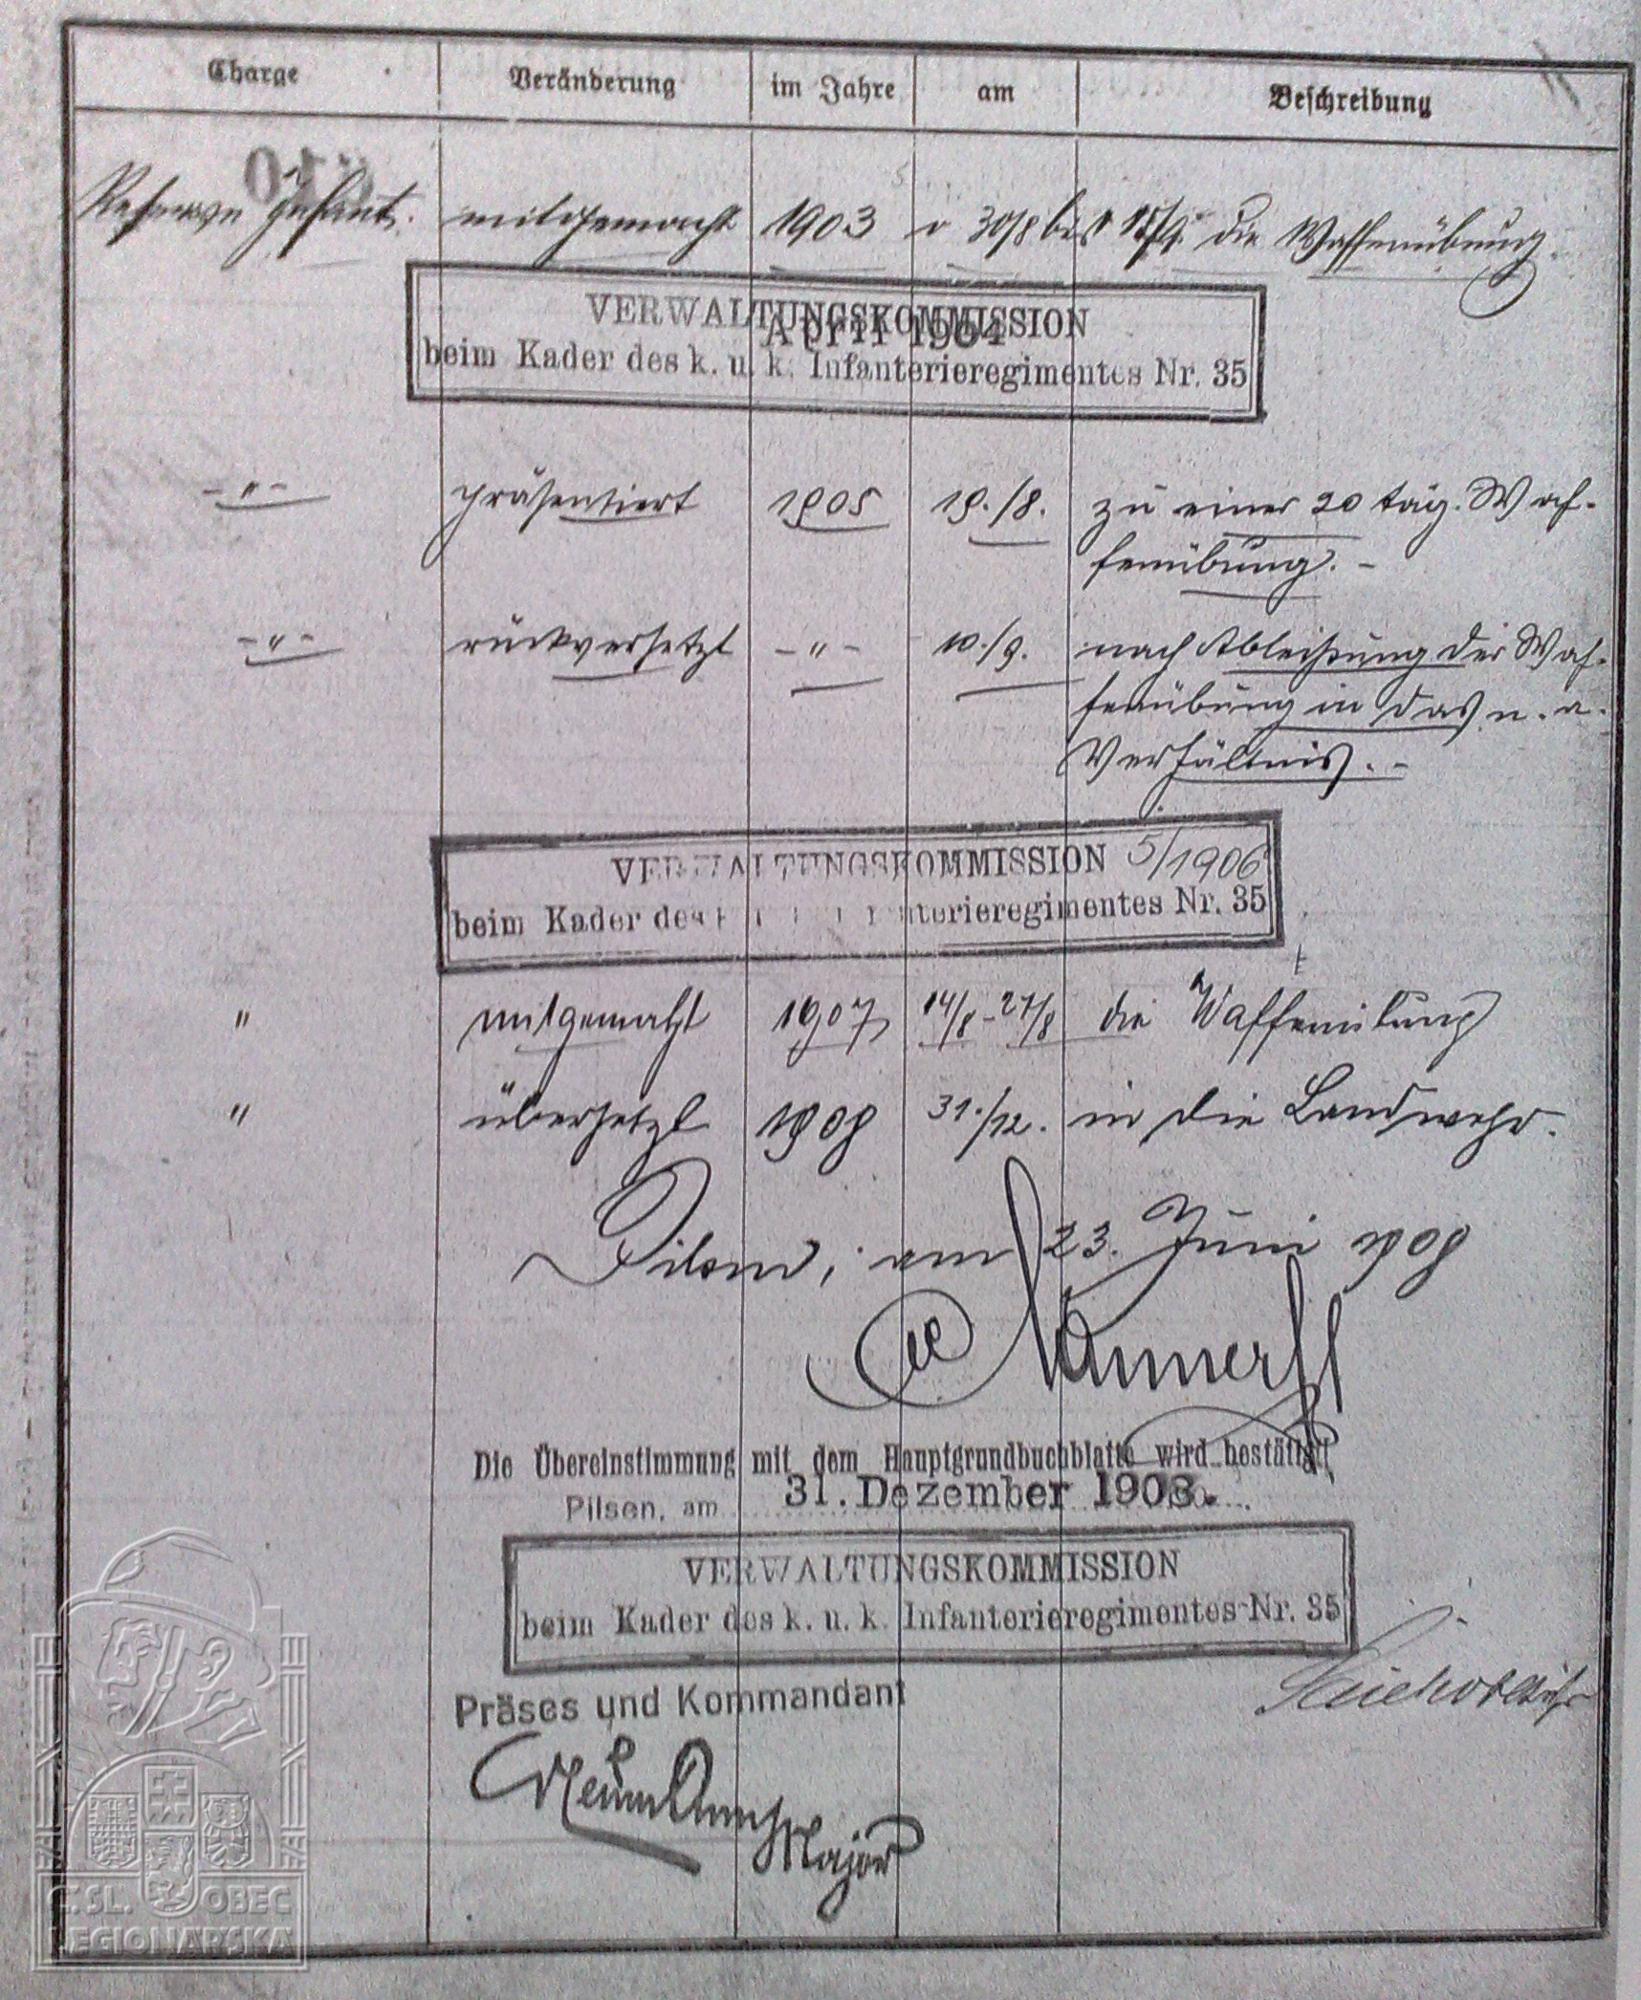 Charge Veränderung im Jahre am Beschreibung
Reserve Infant. mitgemacht 1903 v 30/8 bis 15/9. die Waffenübung.
VERWALTUNGSKOMMISSION
April 1904
beim Kader des k. u. k. Infanterieregimentes Nr. 35
-"- präsentiert 1905 19./8. zu einer 20 täg. Waf-
fenübung. -
-"- rückversetzt -"- 10./9. nach Ableistung der Waf-
fenübung in das n. a.
Verhältnis. -
VERWALTUNGSKOMMISSION 5/1906
beim Kader des Infanterieregimentes Nr. 35
" mitgemacht 1907 14/8-27/8 die Waffenübung
" übersetzt 1908 31./12. in die Landwehr.
Pilsen, am 23. Juni 1908
Die Übereinstimmung mit dem Hauptgrundbuchblatte wird bestätigt
Pilsen, am 31. Dezember 1908.
VERWALTUNGSKOMMISSION
beim Kader des k. u. k. Infanterieregimentes Nr. 35
Präses und Kommandant
Neumann Major
Č.SL. OBEC
LEGIONÁŘSKÁ